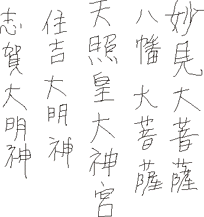 妙見大菩薩
八幡大菩薩
天照皇大神宮
住吉大明神
志賀大明神